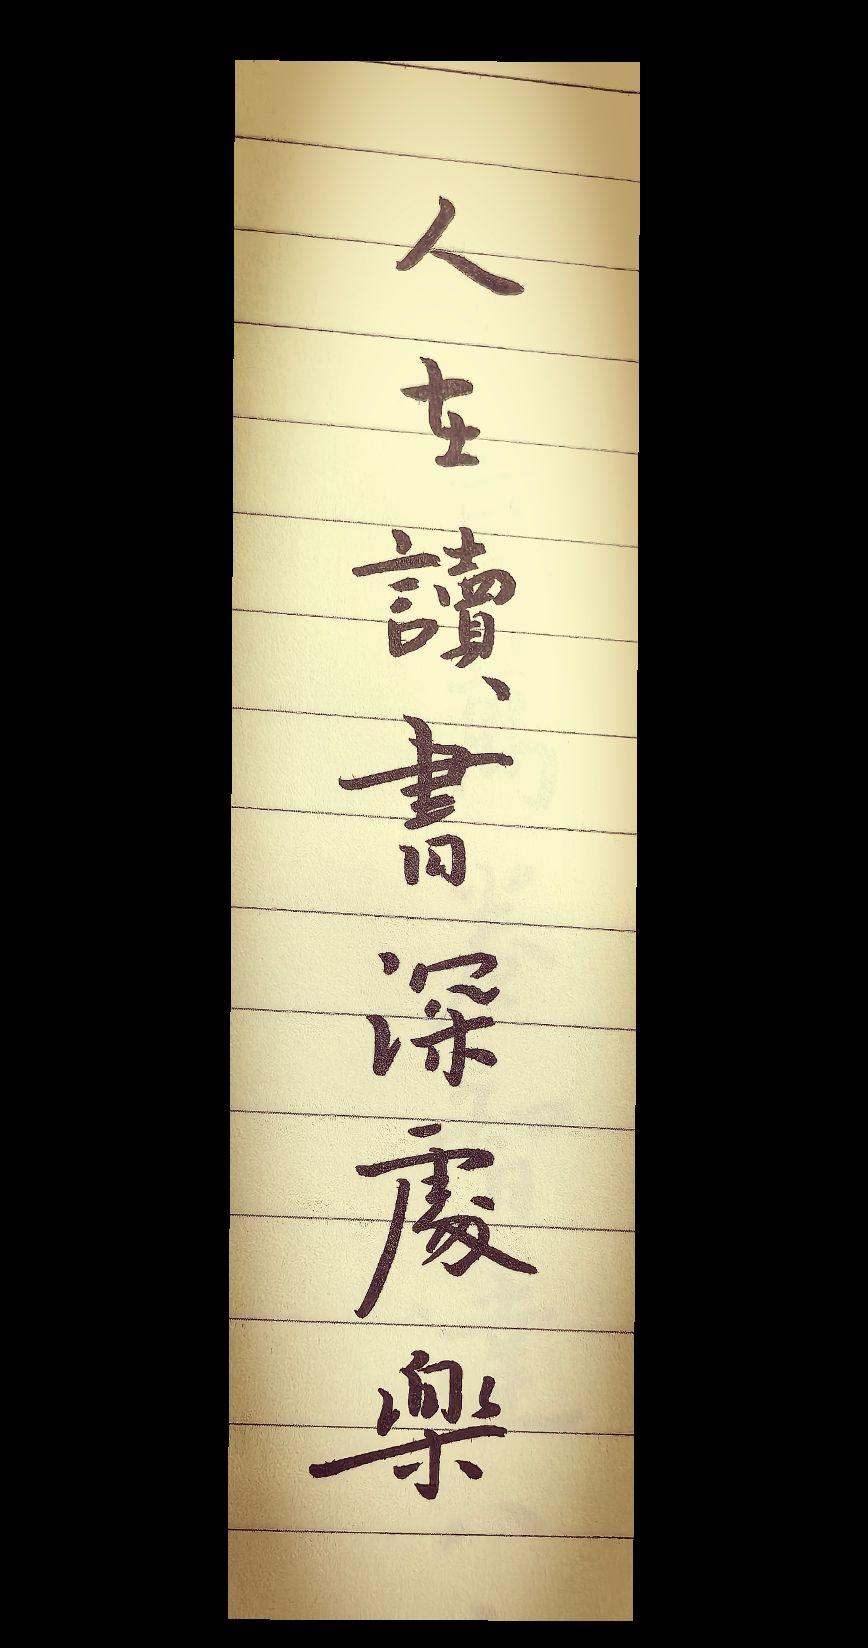 人在讀書深處樂